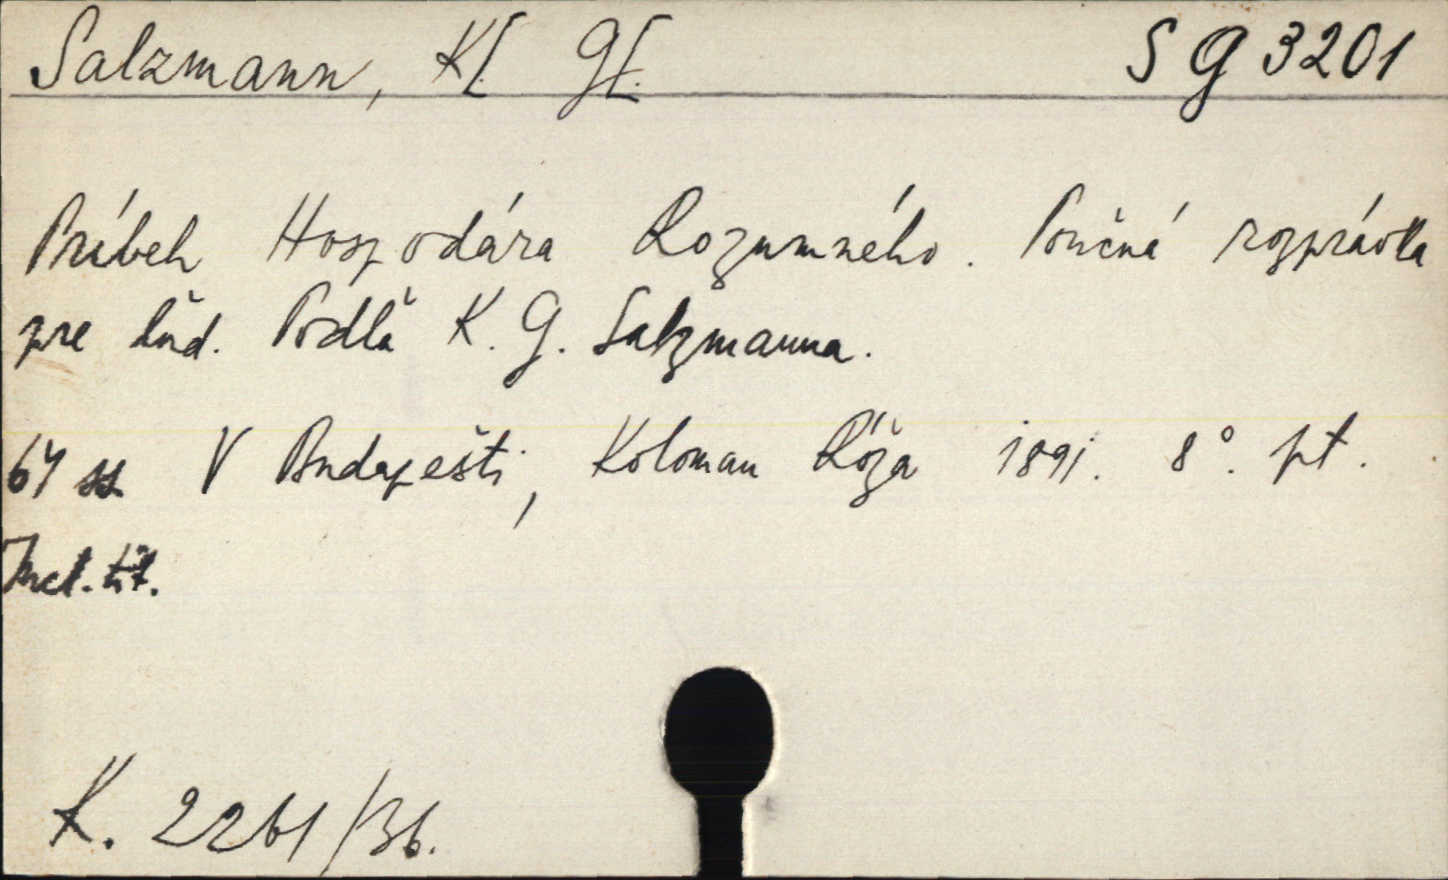 Salzmann, K[. G[. SG 3201
Príbeh Hospodára Rozumného. Poučná rozprávka
pre ľud. Podľa K. G. Salzmanna.
64 ss V Budapešti, Koloman Rózsa 1891. 8°. pt.
Incl. tit.
K. 2261/36.